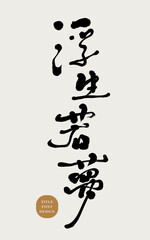 浮生若夢
TITLE
FONT
DESIGN